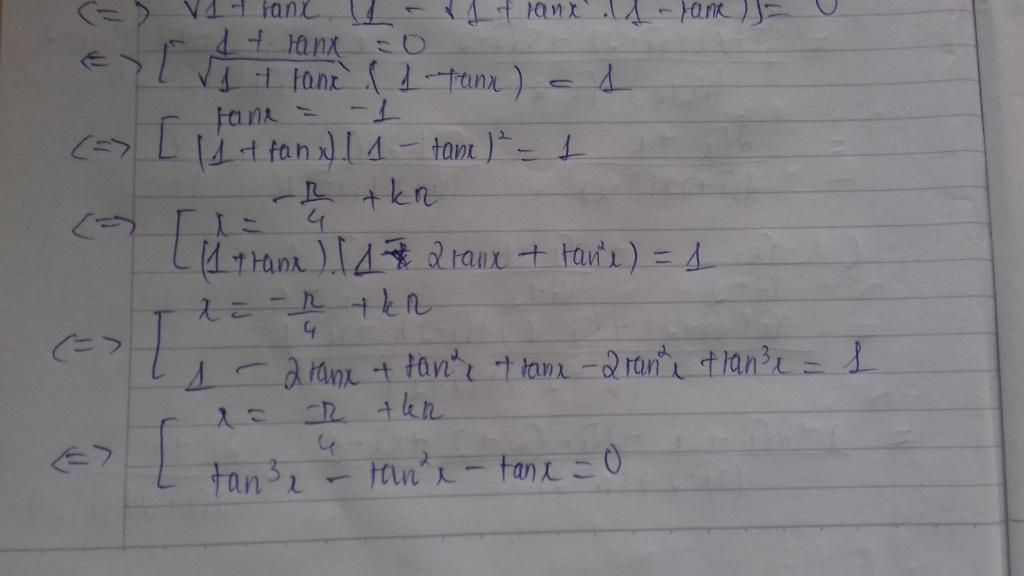 <=> √1 + tanx . [1 - √1 + tanx . (1 - tanx)] = 0
<=> [ 1 + tanx = 0
√1 + tanx . (1 - tanx) = 1
tanx = -1
<=> [ (1 + tanx).(1 - tanx)² = 1
<=> [ x = -π/4 + kπ
(1 + tanx).(1 - 2tanx + tan²x) = 1
<=> [ x = -π/4 + kπ
1 - 2tanx + tan²x + tanx - 2tan²x + tan³x = 1
<=> [ x = -π/4 + kπ
tan³x - tan²x - tanx = 0